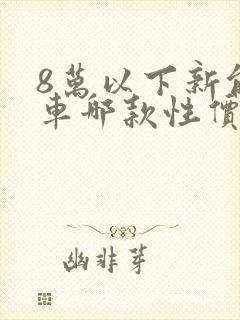 8萬以下新能
車哪款性價
幽非芽